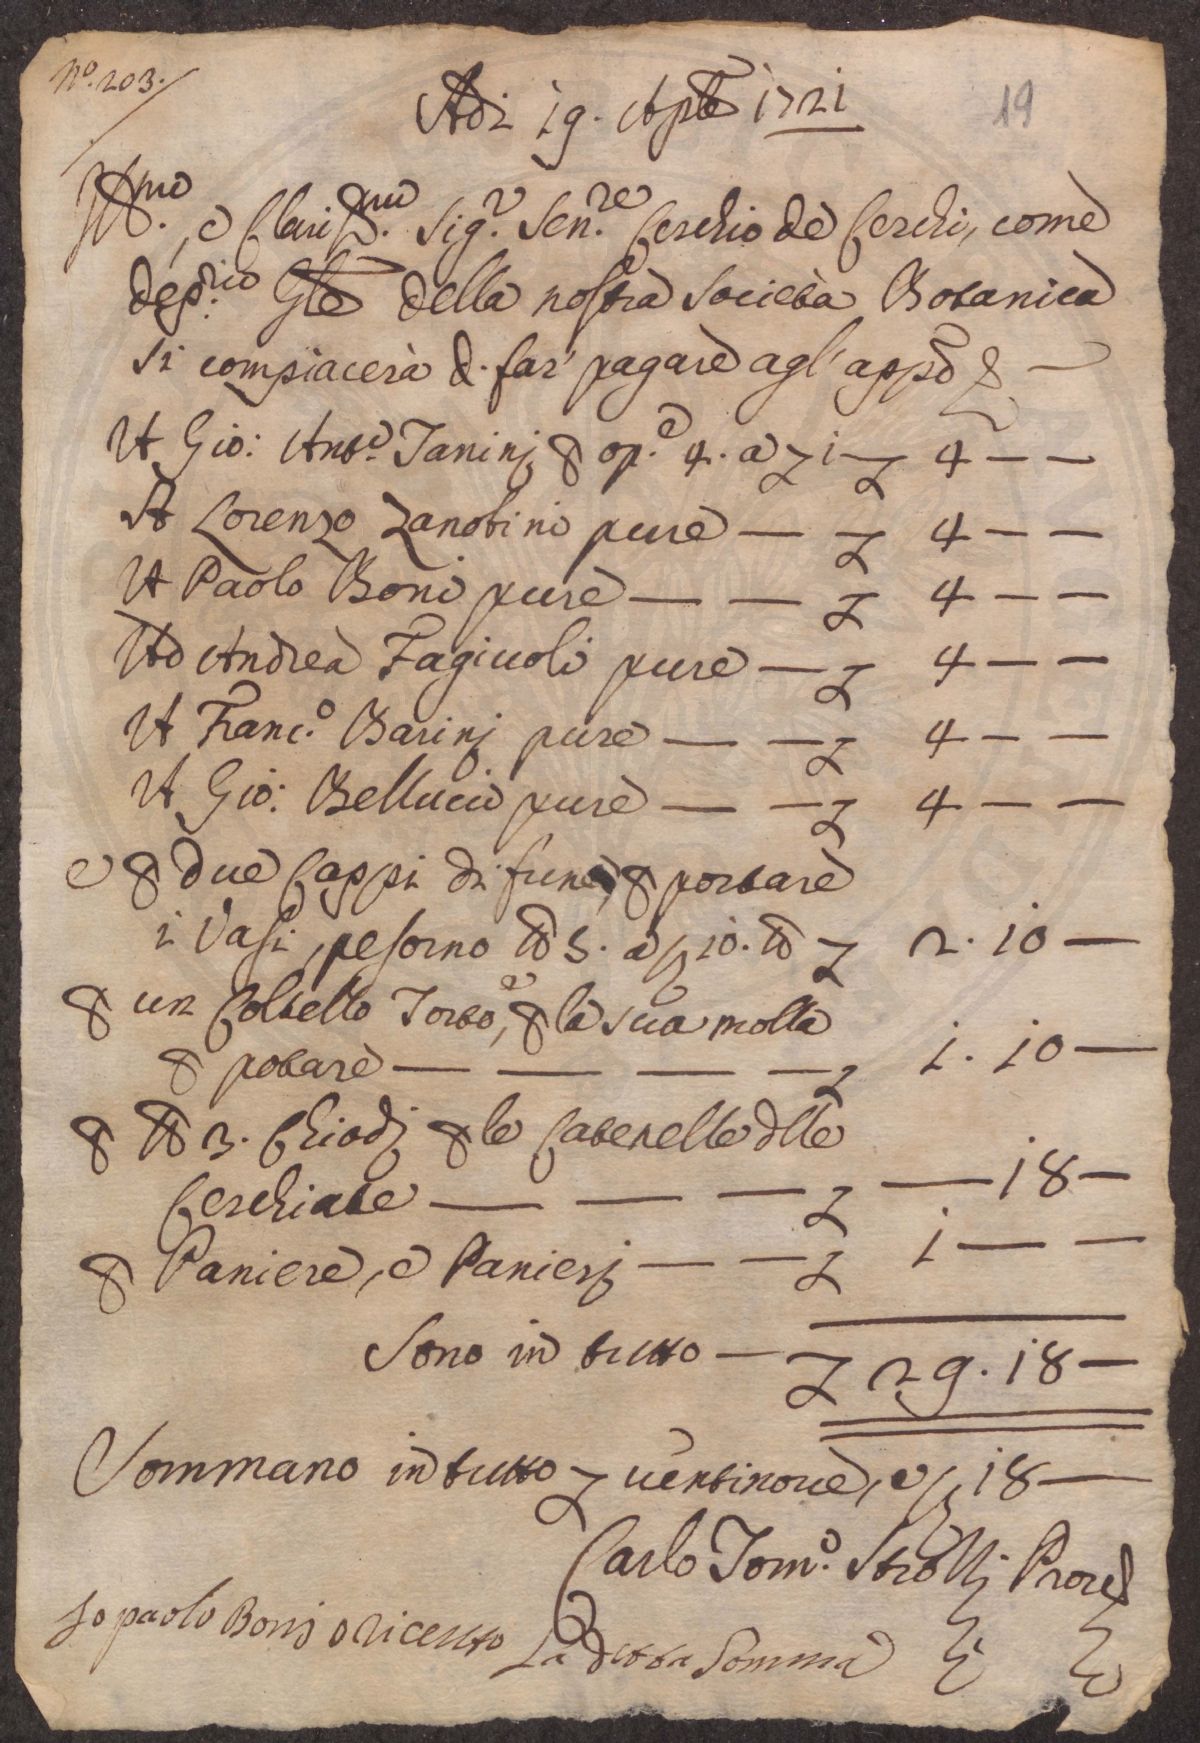 N.º 203.
Adi 19. Aple 1721
19
Ill.mo, e Clariss.mo Sig.r Sen.re Cerchio de Cerchi, come
dep.rio Gle della nostra Società Botanica
si compiacerà d. far' pagare agl' appo
A Gio: Ant.o Tanini p op.e 4. a £ 1 — £ 4 — —
A Lorenzo Zanobini pure — £ 4 — —
A Paolo Boni pure — — £ 4 — —
Ad Andrea Fagiuoli pure — £ 4 — —
A Franc.o Barinj pure — — £ 4 — —
A Gio: Bellucci pure — — £ 4 — —
e p due Cappi di fune, p portare
i Vasi, pesorno lb 5. a ß 10. lb £ 2. 10 —
p un Coltello Torto, e p la sua molla
p potare — — — — £ 1. 10 —
p lb 3. Chiodj p le Catenelle dlle
Cerchiate — — — £ — 18 —
p Paniere, e Panierj — — £ 1 — —
Sono in tutto — £ 29. 18 —
Sommano in tutto £ ventinove, e ß 18 —
Carlo Tom.o Strozzj Prove
Io paolo Bonj o riceuto La detta Somma